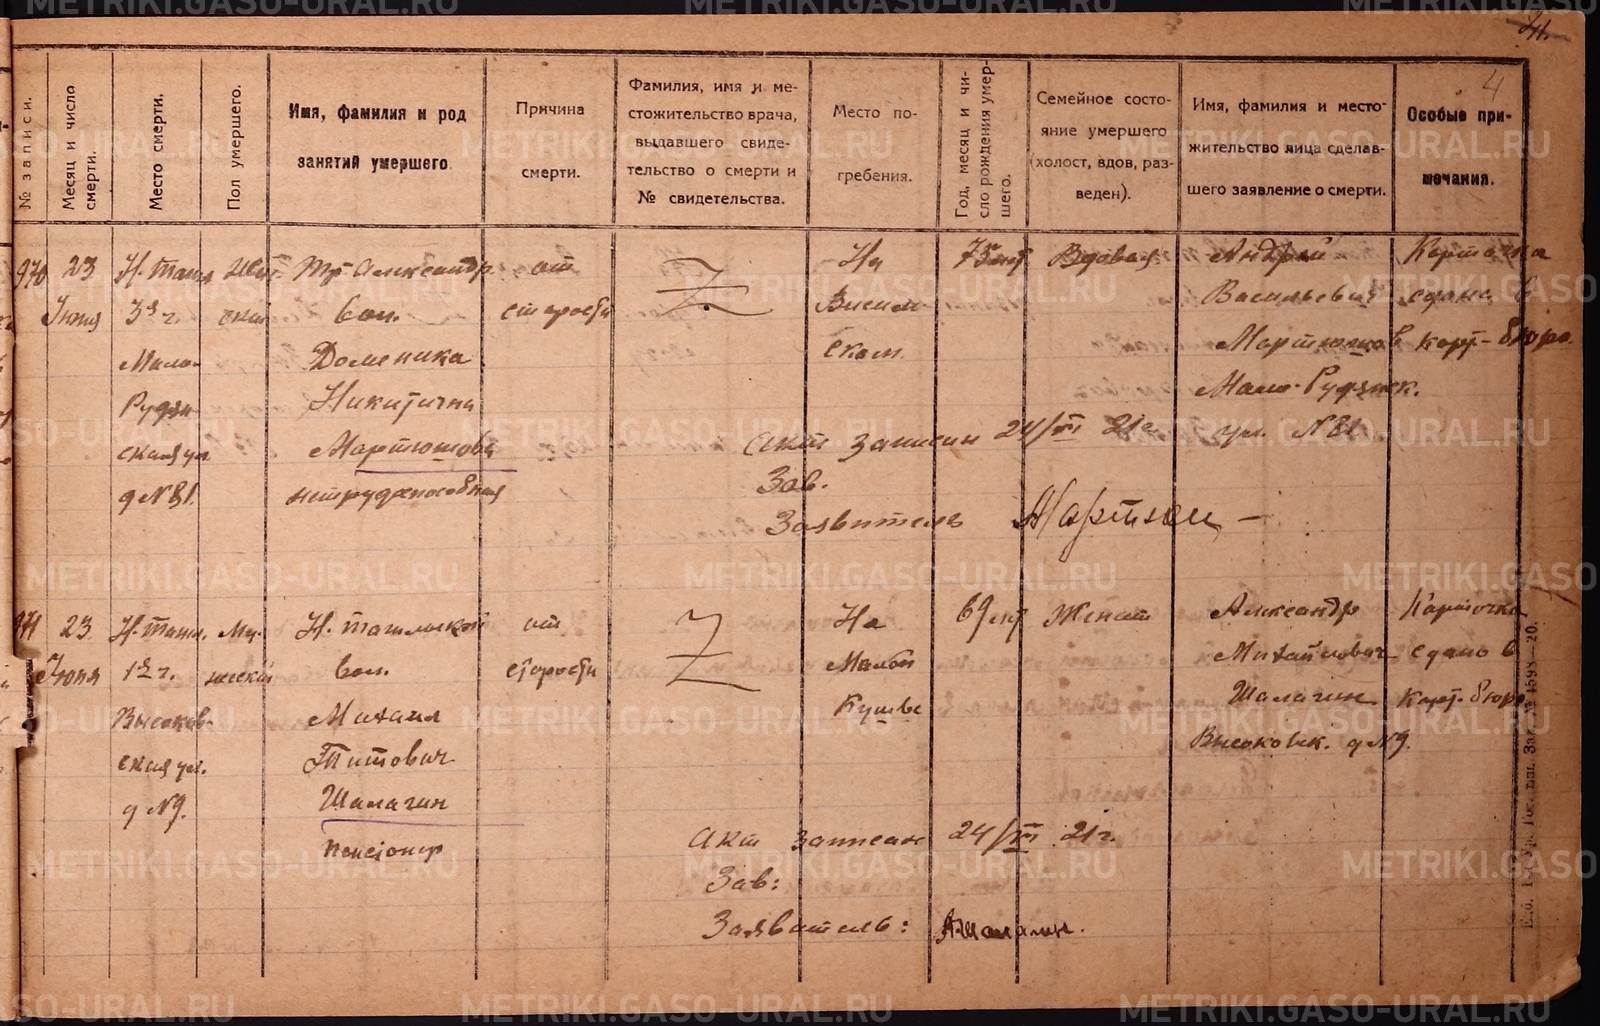 4
№ записи.
Месяц и число
смерти.
Место смерти.
Пол умершего.
Имя, фамилия и род
занятий умершего.
Причина
смерти.
Фамилия, имя и ме-
стожительство врача,
выдавшего свиде-
тельство о смерти и
№ свидетельства.
Место по-
гребения.
Год, месяц и чи-
сло рождения умер-
шего.
Семейное состо-
яние умершего
(холост, вдов, раз-
веден).
Имя, фамилия и место-
жительство лица сделав-
шего заявление о смерти.
Особые при-
мечания.
970
23
Июня
Н. Таги
3й г.
Мало-
Рудян-
ская ул
д N 81.
ский
Александр.
вол.
Доменика
Никитична
Мартюшова
нетрудоспособная
от
старости
Z
На
Висим
ском.
75 лет
Вдовая
Андрей
Васильевич
Мартюшов
Мало-Рудянск.
ул. N 81.
Карточка
сдана в
карт-бюро.
Акт записан 24/VI 21 г.
Зав.
Заявитель Мартюш
971
23
Июня
Н. Таги.
1й г.
Высоков-
ская ул.
д N 9.
Му-
жской
Н. Тагильской
вол.
Михаил
Титович
Шалагин
пенсіонер
от
старости
Z
На
Малой
Кушве
69 лет
Женат
Александр
Михайлович
Шалагин
Высоковск. д N 9.
Карточка
сдано в
карт-бюро
Акт записан 24/VI 21 г.
Зав:
Заявитель: А Шалагин.
METRIKI.GASO-URAL.RU